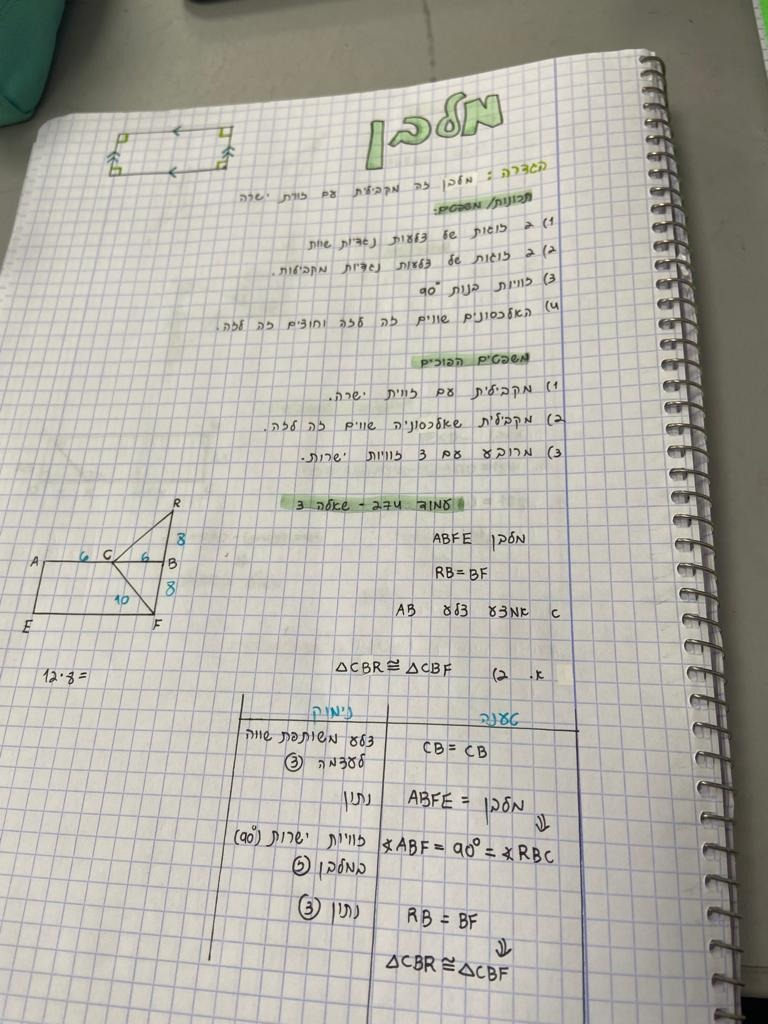 מלבן
הגדרה: מלבן זה מקבילית עם זווית ישרה
תכונות/משפטים:
1) 2 זוגות של צלעות נגדיות שוות
2) 2 זוגות של צלעות נגדיות מקבילות.
3) זוויות בנות 90°
4) האלכסונים שווים זה לזה וחוצים זה לזה.
משפטים הפוכים
1) מקבילית עם זווית ישרה.
2) מקבילית שאלכסוניה שווים זה לזה.
3) מרובע עם 3 זוויות ישרות.
עמוד 274 - שאלה 3
מלבן ABFE
RB=BF
C אמצע צלע AB
R
8
A 6 C 6 B
10 8
E F
12·8=
א. 2) △CBR≅△CBF
טענה נימוק
CB=CB צלע משותפת שווה
לעצמה (3)
מלבן = ABFE נתון
⇓
∢ABF=90°=∢RBC זוויות ישרות (90°)
במלבן (5)
RB=BF נתון (3)
⇓
△CBR≅△CBF